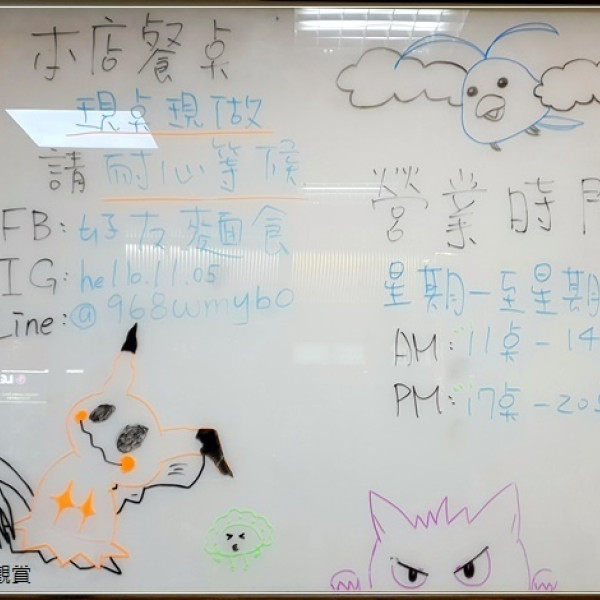 本店餐点
現点現做
請耐心等候
FB:好友麵食
IG:hello.11.05
Line:@968wmybo
營業時間
星期一至星期
AM:11点-14
PM:17点-20
觀賞